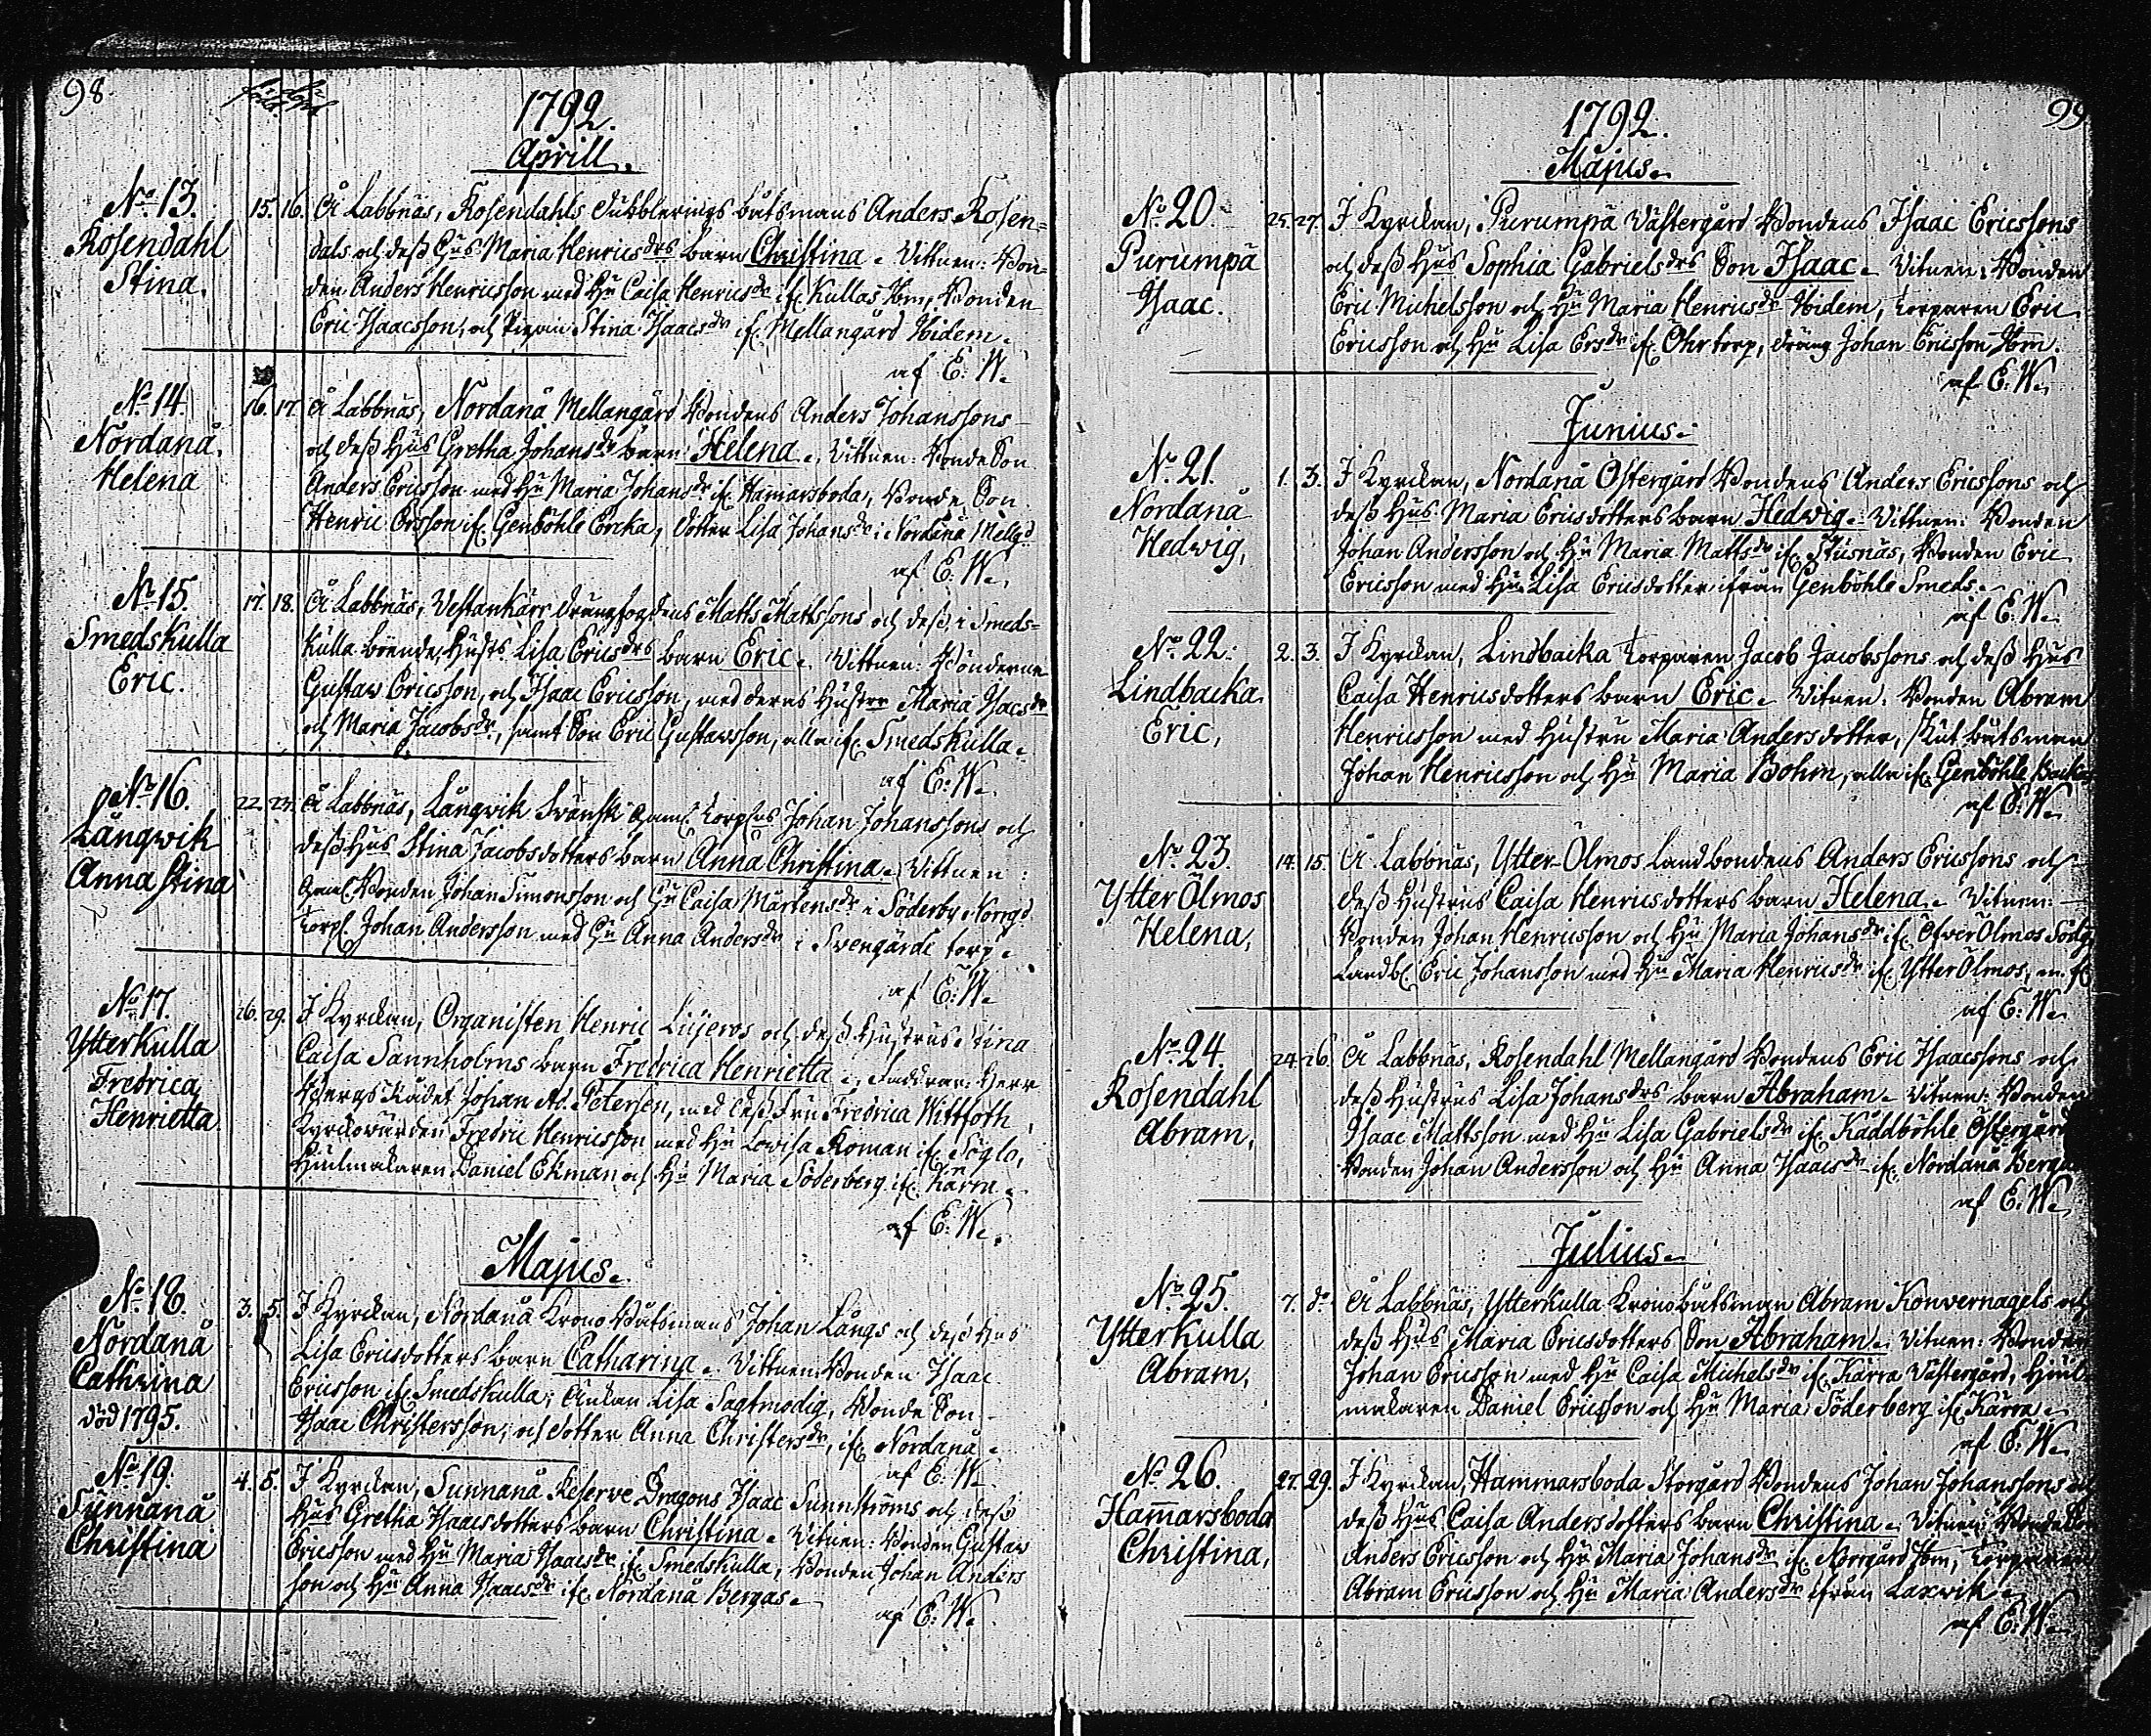 98
1792.
Aprill.
No. 13.
Rosendahl
Stina.
15. 16. Å Labbnäs, Rosendahls dubblerings båtsmans Anders Rosen=
dals och dess Hus Maria Henricsdrs barn Christina. Vittnen: Bon=
den Anders Henricsson med Hu Caisa Henricsdr ifr. Kullas Ibm, Bonden
Eric Isaacsson, och Pigan Stina Isaacsdr ifr. Mellangård Ibidem.
af E: W.
No. 14.
Nordanå.
Helena
16. 17. Å Labbnäs, Nordanå Mellangård Bondens Anders Johanssons
och dess Hus Gretha Johansdr barn Helena. Vittnen: Bonde Son
Anders Ericsson med Hu Maria Johansdr ifr. Hamarsboda, Bonde Son
Henric Ersson ifr. Genböhle, dotter Lisa Johansdr i Nordanå Mellgd
af E. W.
No. 15.
Smedskulla
Eric.
17. 18. Å Labbnäs, Vestankärr drängfogdens Matts Mattssons och dess, i Smeds=
kulla boende, Hustrs Lisa Ericsdrs barn Eric. Vittnen: Bönderne
Gustaw Ericsson, och Isaac Ericsson, med deras Hustrr Maria Isacsdr
och Maria Jacobsdr, samt Son Eric Gustavsson, alla ifr. Smedskulla.
af E: W.
No. 16.
Långwik
Anna Stina
22. 23. Å Labbnäs, Långwik Svänsk Torp Johan Johanssons och
dess Hus Stina Jacobsdotters barn Anna Christina. Vittnen:
Bonden Johan Simonsson och Hu Caisa Mårtensdr i Söderby Norrgd
Torp. Johan Andersson med Hu Anna Andersdr i Svengärde torp.
af E: W.
No. 17.
Ytterkulla
Fredrica
Henrietta
26. 29. I Kyrckan, Organisten Henric Liljeros och dess Hustrus Stina
Caisa Sannholms barn Fredrica Henrietta. Faddrar: Herr
Bergs Rådet Johan Ad. Petersen, med dess Fru Fredrica Wittfoth,
Kyrckovärden Fredric Henricsson med Hu Lovisa Roman ifr. Söglo,
Hiulmakaren Daniel Ekman och Hu Maria Söderberg ifr. Kärra.
af E: W.
Majus.
No. 18.
Nordanå
Cathrina
död 1795.
3. 5. I Kyrckan, Nordanå Krono Båtsmans Johan Långs och dess Hus
Lisa Ericsdotters barn Catharina. Vittnen: Bonden Isaac
Ericsson ifr. Smedskulla, Änkan Lisa Sagtmodig, Bonde Son
Isaac Christersson, och dotter Anna Christersdr, ifr. Nordanå.
af E: W.
No. 19.
Sunnanå
Christina
4. 5. I Kyrckan, Sunnanå Reserve Dragons Isaac Sunnströms och dess
Hus Gretha Isaacsdotters barn Christina. Vitnen: Bonden Gustaw
Ericsson med Hu Maria Isaacsdr ifr. Smedskulla, Bonden Johan Anders
son och Hu Anna Isaacsdr ifr. Nordanå Bergas.
af E: W.
99
1792.
Majus.
No. 20.
Purumpä
Isaac.
25. 27. I Kyrckan, Purumpä Västergård Bondens Isaac Ericssons
och dess Hus Sophia Gabrielsdrs Son Isaac. Vitnen: Bonden
Eric Michelsson och Hu Maria Henricsdr Ibidem, torparen Eric
Ericsson och Hu Lisa Ersdr ifr. Ohrtorp, dräng Johan Ericsson Ibm.
af E: W.
Junius.
No. 21.
Nordanå
Hedwig,
1. 3. I Kyrckan, Nordanå Östergård Bondens Anders Ericssons och
dess Hus Maria Ericsdotters barn Hedwig. Vittnen: Bonden
Johan Andersson och Hu Maria Mattsdr ifr. Stusnäs, Bonden Eric
Ericsson med Hu Lisa Ericsdotter ifrån Genböhle Smeds.
af E: W.
No. 22.
Lindbacka
Eric,
2. 3. I Kyrckan, Lindbacka torparen Jacob Jacobssons och dess Hus
Caisa Henricsdotters barn Eric. Vitnen: Bonden Abram
Henricsson med Hustru Maria Andersdotter, båtsman
Johan Henricsson och Hu Maria Bohm, alla ifr. Genböhle Backas
af E: W.
No. 23.
Ytter Ölmos
Helena,
14. 15. Å Labbnäs, Ytter-Ölmos Landbondens Anders Ericssons och
dess Hustrus Caisa Henricsdotters barn Helena. Vitnen:
Bonden Johan Henricsson och Hu Maria Johansdr ifr. Öfver Ölmos Södg,
Landb. Eric Johansson med Hu Maria Henricsdr ifr. Ytter Ölmos,
af E: W.
No. 24.
Rosendahl
Abram,
24. 26. Å Labbnäs, Rosendahl Mellangård Bondens Eric Isaacssons och
dess Hustrus Lisa Johansdrs barn Abraham. Vitnen: Bonden
Isaac Mattsson med Hu Lisa Gabrielsdr ifr. Räddböhle Östergård
Bonden Johan Andersson och Hu Anna Isaacsdr ifr. Nordanå Bergas
af E: W.
Julius.
No. 25.
Ytterkulla
Abram,
7. do. Å Labbnäs, Ytterkulla Krono båtsman Abram Konvernagels och
dess Hus Maria Ericsdotters Son Abraham. Vitnen: Bonden
Johan Ericsson med Hu Caisa Michelsdr ifr. Kärra Västergård, Hiul-
makaren Daniel Ericsson och Hu Maria Söderberg ifr. Kärra.
af E: W.
No. 26.
Hamarsboda
Christina,
27. 29. I Kyrckan, Hammarsboda Storgård Bondens Johan Johanssons och
dess Hus Caisa Andersdotters barn Christina. Vitnen: Bonde Son
Anders Ericsson och Hu Maria Johansdr ifr. Norrgård Ibm, Torparen
Abram Ericsson och Hu Maria Andersdr ifrån Laxwik.
af E: W.